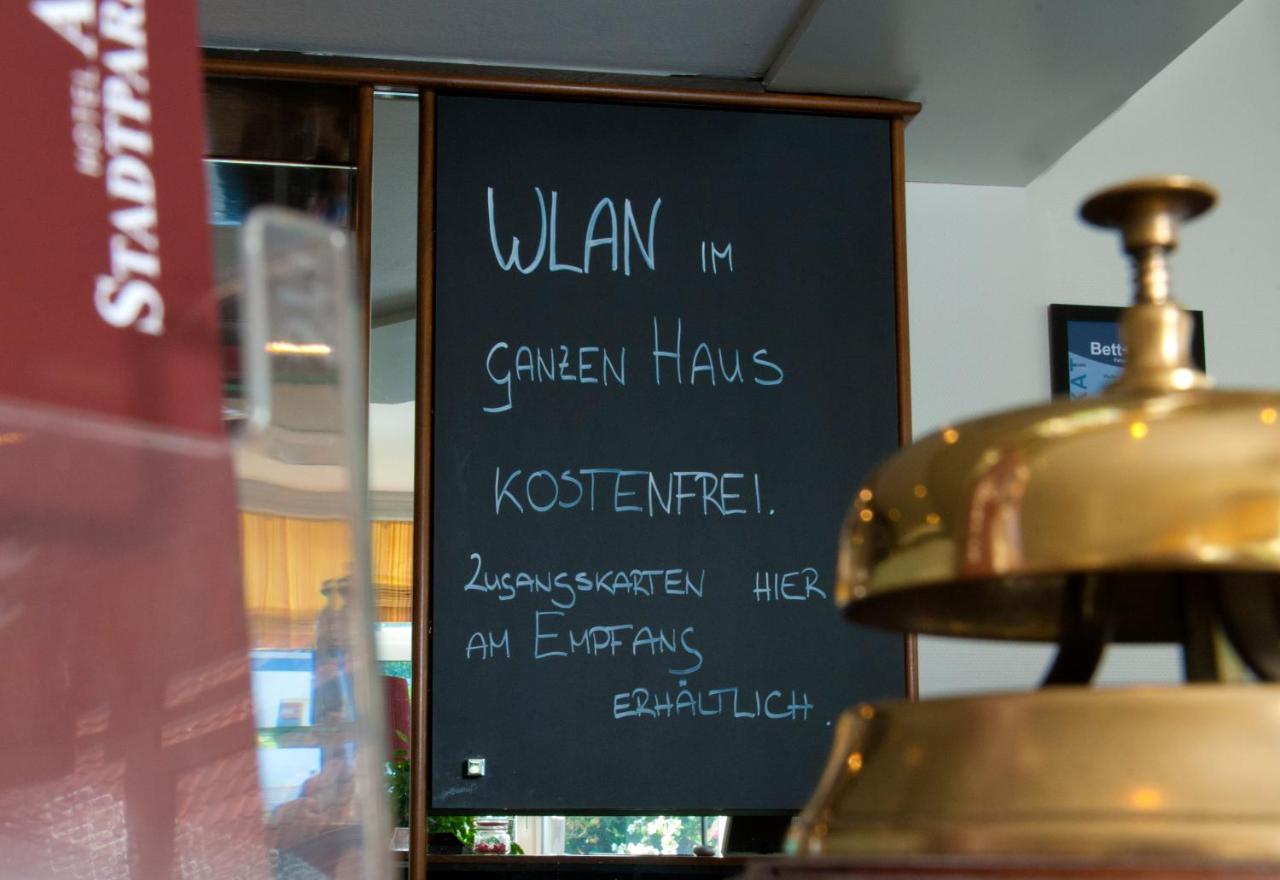 HOTEL A
STADTPAR
WLAN IM
GANZEN HAUS
KOSTENFREI.
ZUGANGSKARTEN HIER
AM EMPFANG
ERHÄLTLICH.
Bett